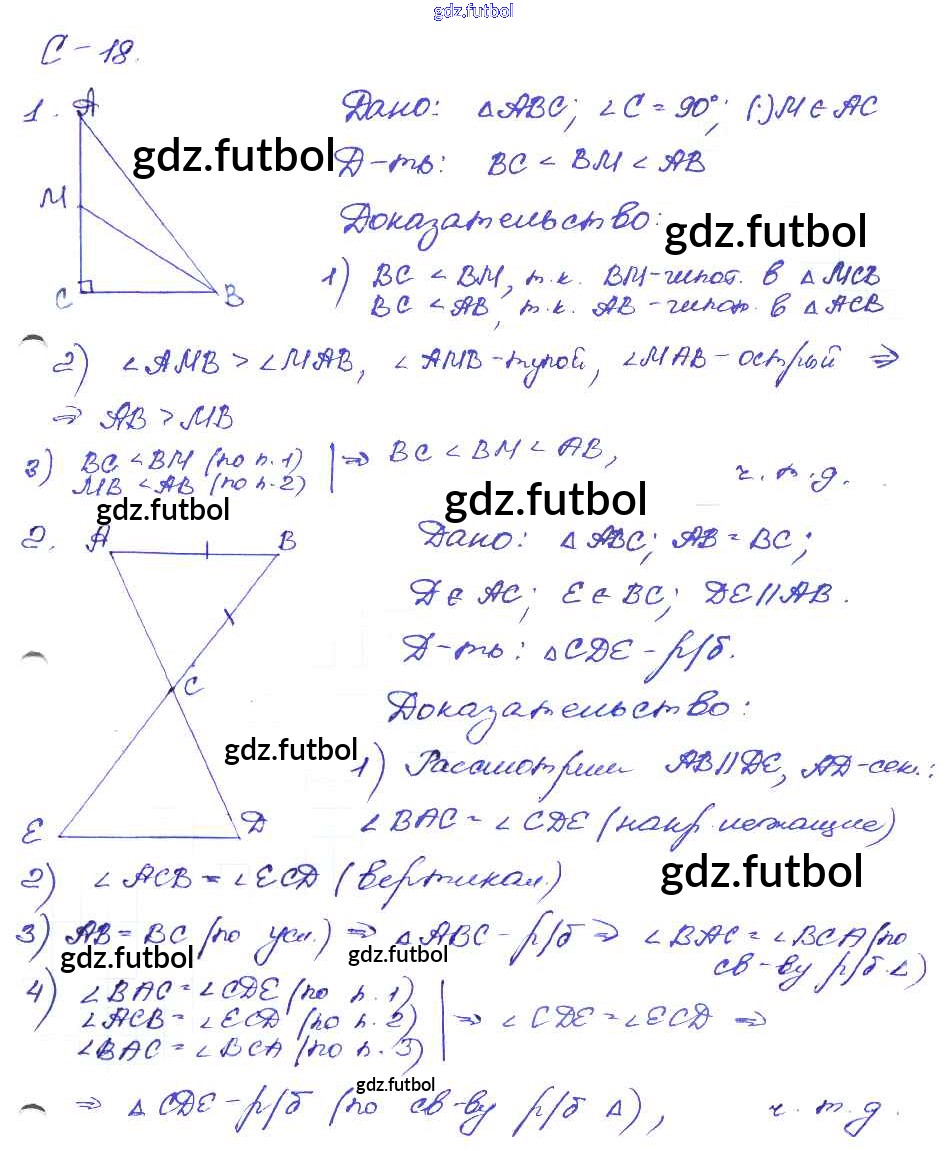 gdz.futbol
С-18.
1.
A
M
C
B
Дано: △ABC; ∠C = 90°; (·) M ∈ AC
gdz.futbol
Д-ть: BC < BM < AB
Доказательство:
gdz.futbol
1) BC < BM, т.к. BM-гипот. в △MCB
BC < AB, т.к. AB-гипот. в △ACB
2) ∠AMB > ∠MAB, ∠AMB-тупой, ∠MAB-острый ⇒
⇒ AB > MB
3) BC < BM (по п.1) | ⇒ BC < BM < AB,
MB < AB (по п.2)
ч.т.д.
gdz.futbol
gdz.futbol
2.
A
B
C
E
D
Дано: △ABC; AB = BC;
D ∈ AC; E ∈ BC; DE∥AB.
Д-ть: △CDE-р/б.
Доказательство:
gdz.futbol
1) Рассмотрим AB∥DE, AD-сек.:
∠BAC = ∠CDE (накр. лежащие)
2) ∠ACB = ∠ECD (вертикал.)
gdz.futbol
3) AB = BC (по усл.) ⇒ △ABC-р/б ⇒ ∠BAC = ∠BCA (по
св-ву р/б △)
gdz.futbol
gdz.futbol
4) ∠BAC = ∠CDE (по п.1)
∠ACB = ∠ECD (по п.2) | ⇒ ∠CDE = ∠ECD ⇒
∠BAC = ∠BCA (по п.3)
gdz.futbol
⇒ △CDE-р/б (по св-ву р/б △), ч.т.д.